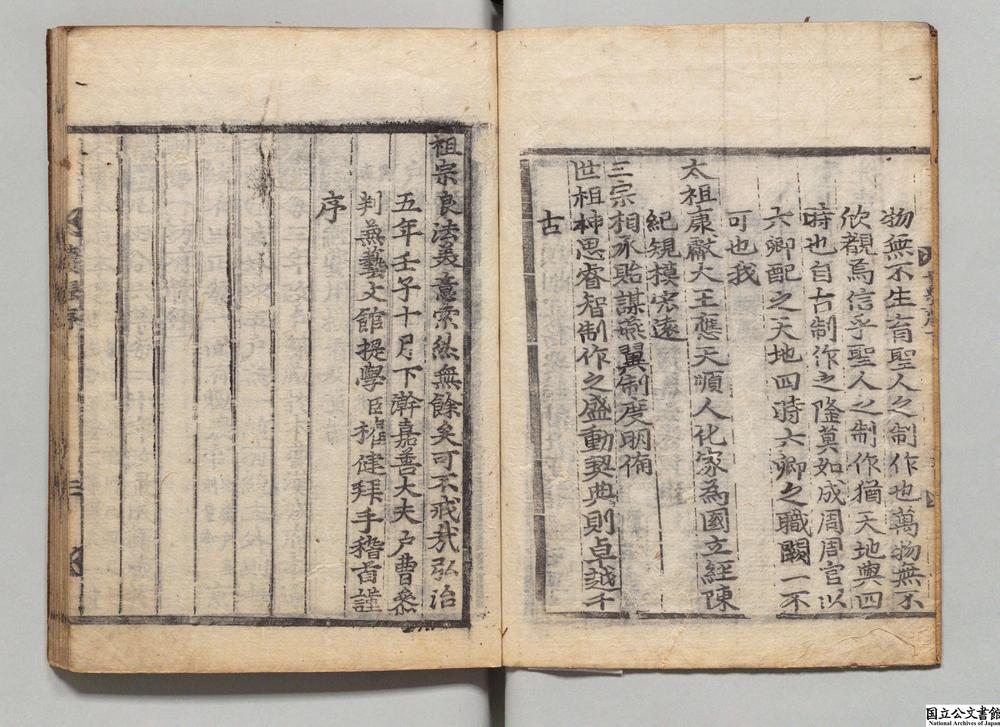 物無不生育聖人之制作也萬物無不
欣覩焉信乎聖人之制作猶天地與四
時也自古制作之隆莫如成周周官以
六卿配之天地四時六卿之職闕一不
可也我
太祖康獻大王應天順人化家為國立經陳
紀規模宏遠
三宗相承貽謀燕翼制度明備
世祖神思睿智制作之盛動契典則卓越千
古
祖宗良法美意索然無餘矣可不戒哉弘治
五年壬子十月下澣嘉善大夫戶曹參
判兼藝文館提學臣權健拜手稽首謹
序
国立公文書館
National Archives of Japan